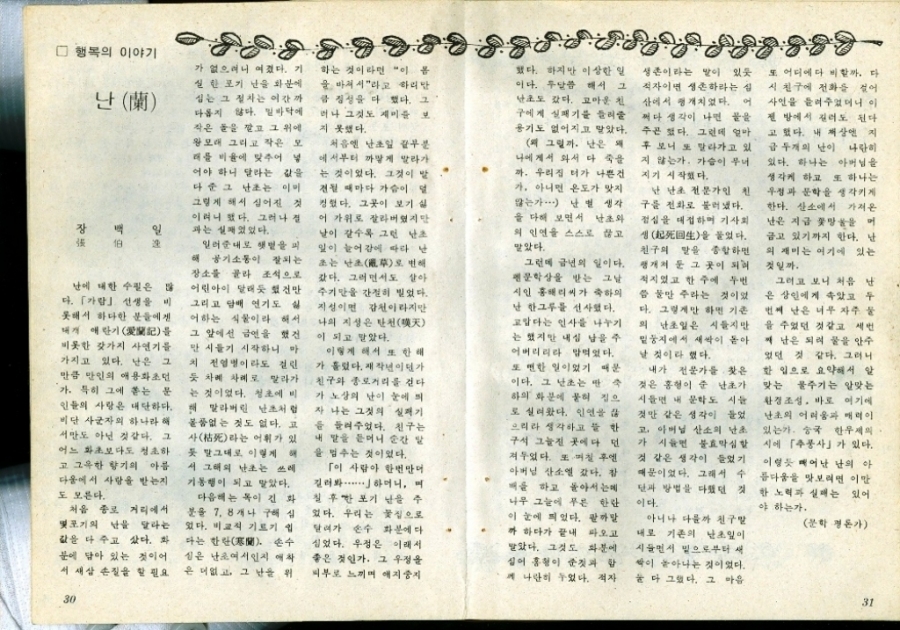 □ 행복의 이야기
난(蘭)
장 백 일
張 伯 逸
난에 대한 수필은 많
다. 「가람」 선생을 비
롯해서 하다한 분들에겐
대개 애란기(愛蘭記)를
비롯한 갖가지 사연기를
가지고 있다. 난은 그
만큼 만인의 애용화초던
가. 특히 그에 쏟는 문
인들의 사랑은 대단하다.
비단 사군자의 하나라 해
서만도 아닌 것같다. 그
어느 화초보다도 청초하
고 그윽한 향기의 아름
다움에서 사랑을 받는지
도 모른다.
처음 종로 거리에서
몇포기의 난을 달라는
값을 다 주고 샀다. 화
분에 담아 있는 것이어
서 새삼 손질을 할 필요
가 없으려니 여겼다. 기
실 한 포기 난을 화분에
심는 그 절차는 여간 까
다롭지 않다. 밑바닥에
작은 돌을 깔고 그 위에
왕모래 그리고 작은 모
래를 비율에 맞추어 넣
어야 하니 달라는 값을
다 준 그 난초는 이미
그렇게 해서 심어진 것
이려니 했다. 그러나 결
과는 실패였었다.
일러준대로 햇볕을 피
해 공기소통이 잘되는
장소를 골라 조석으로
어린아이 달래듯 했건만
그리고 담배 연기도 싫
어하는 식물이라 해서
그 앞에선 금연을 했건
만 시들기 시작하니 마
치 전염병이라도 걸린
듯 차례 차례로 말라가
는 것이었다. 정초에 비
해 말라버린 난초처럼
볼품없는 것도 없다. 고
사(枯死)라는 어휘가 있
듯 말그대로 이렇게 해
서 그해의 난초는 쓰레
기통행이 되고 말았다.
다음해는 목이 긴 화
분을 7, 8개나 구해 심
었다. 비교적 기르기 쉽
다는 한란(寒蘭). 손수
심은 난초여서인지 애착
은 더없고, 그 난을 위
하는 것이라면 “이 몸
을 마쳐서”라고 하리만
큼 정성을 다 했다. 그
러나 그것도 재미를 보
지 못했다.
처음엔 난초잎 끝부분
에서부터 까맣게 말라가
는 것이었다. 그것이 발
견될 때마다 가슴이 덜
컹했다. 그곳이 보기 싫
어 가위로 잘라버렸지만
날이 갈수록 그런 난초
잎이 늘어감에 따라 난
초는 난초(亂草)로 변해
갔다. 그러면서도 살아
주기만을 간절히 빌었다.
지성이면 감천이라지만
나의 지성은 탄천(嘆天)
이 되고 말았다.
이렇게 해서 또 한 해
가 흘렀다. 재작년이던가
친구와 종로거리를 걷다
가 노상의 난이 눈에 띄
자 나는 그것의 실패기
를 들려주었다. 친구는
내 말을 듣더니 순간 발
을 멈추는 것이었다.
「이 사람아 한번만더
길러봐……」하더니, 며
칠 후 한 포기 난을 주
었다. 우리는 꽃집으로
달려가 손수 화분에다
심었다. 우정은 이래서
좋은 것인가. 그 우정을
피부로 느끼며 애지중지
했다. 하지만 이상한 일
이다. 두달쯤 해서 그
난초도 갔다. 고마운 친
구에게 실패기를 들려줄
용기도 없어지고 말았다.
(왜 그럴까, 난은 왜
나에게서 와서 다 죽을
까. 우리집 터가 나쁜건
가, 아니면 온도가 맞지
않는가…) 난 별 생각
을 다해 보면서 난초와
의 인연을 스스로 끊고
말았다.
그런데 금년의 일이다.
펜문학상을 받는 그날
시인 홍해리씨가 축하의
난 한그루를 선사했다.
고맙다는 인사를 나누기
는 했지만 내심 남을 주
어버리리라 맘먹었다.
또 뻔한 일이었기 때문
이다. 그 난초는 딴 축
하의 화분에 묻혀 집으
로 실려왔다. 인연을 끊
으리라 생각하고 뜰 한
구석 그늘진 곳에다 던
져두었다. 또 며칠 후엔
아버님 산소엘 갔다. 참
배를 하고 돌아서는데
나무 그늘에 푸른 한란
이 눈에 띄었다. 팔까말
까 하다가 끝내 파오고
말았다. 그것도 화분에
심어 홍형이 준것과 함
께 나란히 두었다. 적자
생존이라는 말이 있듯
적자이면 생존하라는 심
산에서 팽개치었다. 어
쩌다 생각이 나면 물을
주곤 했다. 그런데 얼마
후 보니 또 말라가고 있
지 않는가. 가슴이 무너
지기 시작했다.
난 난초 전문가인 친
구를 전화로 불러냈다.
점심을 대접하며 기사회
생(起死回生)을 물었다.
친구의 말을 종합하면
팽개쳐 둔 그 곳이 되려
적지였고 한 주에 두번
쯤 물만 주라는 것이었
다. 그렇게만 하면 기존
의 난초잎은 시들지만
밑둥지에서 새싹이 돋아
날 것이라 했다.
내가 전문가를 찾은
것은 홍형이 준 난초가
시들면 내 문학도 시들
것만 같은 생각이 들었
고, 아버님 산소의 난초
가 시들면 불효막심할
것 같은 생각이 들었기
때문이었다. 그래서 수
단과 방법을 다했던 것
이다.
아니나 다를까 친구말
대로 기존의 난초잎이
시들면서 밑으로부터 새
싹이 돋아나는 것이었다.
둘 다 그랬다. 그 마음
또 어디에다 비할까. 다
시 친구에 전화를 걸어
사연을 들려주었더니 이
젠 방에서 길러도 된다
고 했다. 내 책상엔 지
금 두개의 난이 나란히
있다. 하나는 아버님을
생각케 하고 또 하나는
우정과 문학을 생각키게
한다. 산소에서 가져온
난은 지금 꽃망울을 머
금고 있기까지 한다. 난
의 재미는 여기에 있는
것일까.
그러고 보니 처음 난
은 상인에게 속았고 두
번째 난은 너무 자주 물
을 주었던 것같고 세번
째 난은 되려 물을 안주
었던 것 같다. 그러니
한 일으로 요약해서 알
맞는 물주기는 알맞는
환경조성, 바로 여기에
난초의 어려움과 매력이
있는가. 중국 한무제의
시에 「추풍사」가 있다.
이렇듯 빼어난 난의 아
름다움을 맛보려면 이만
한 노력과 실패는 있어
야 하는가.
(문학 평론가)
30
31